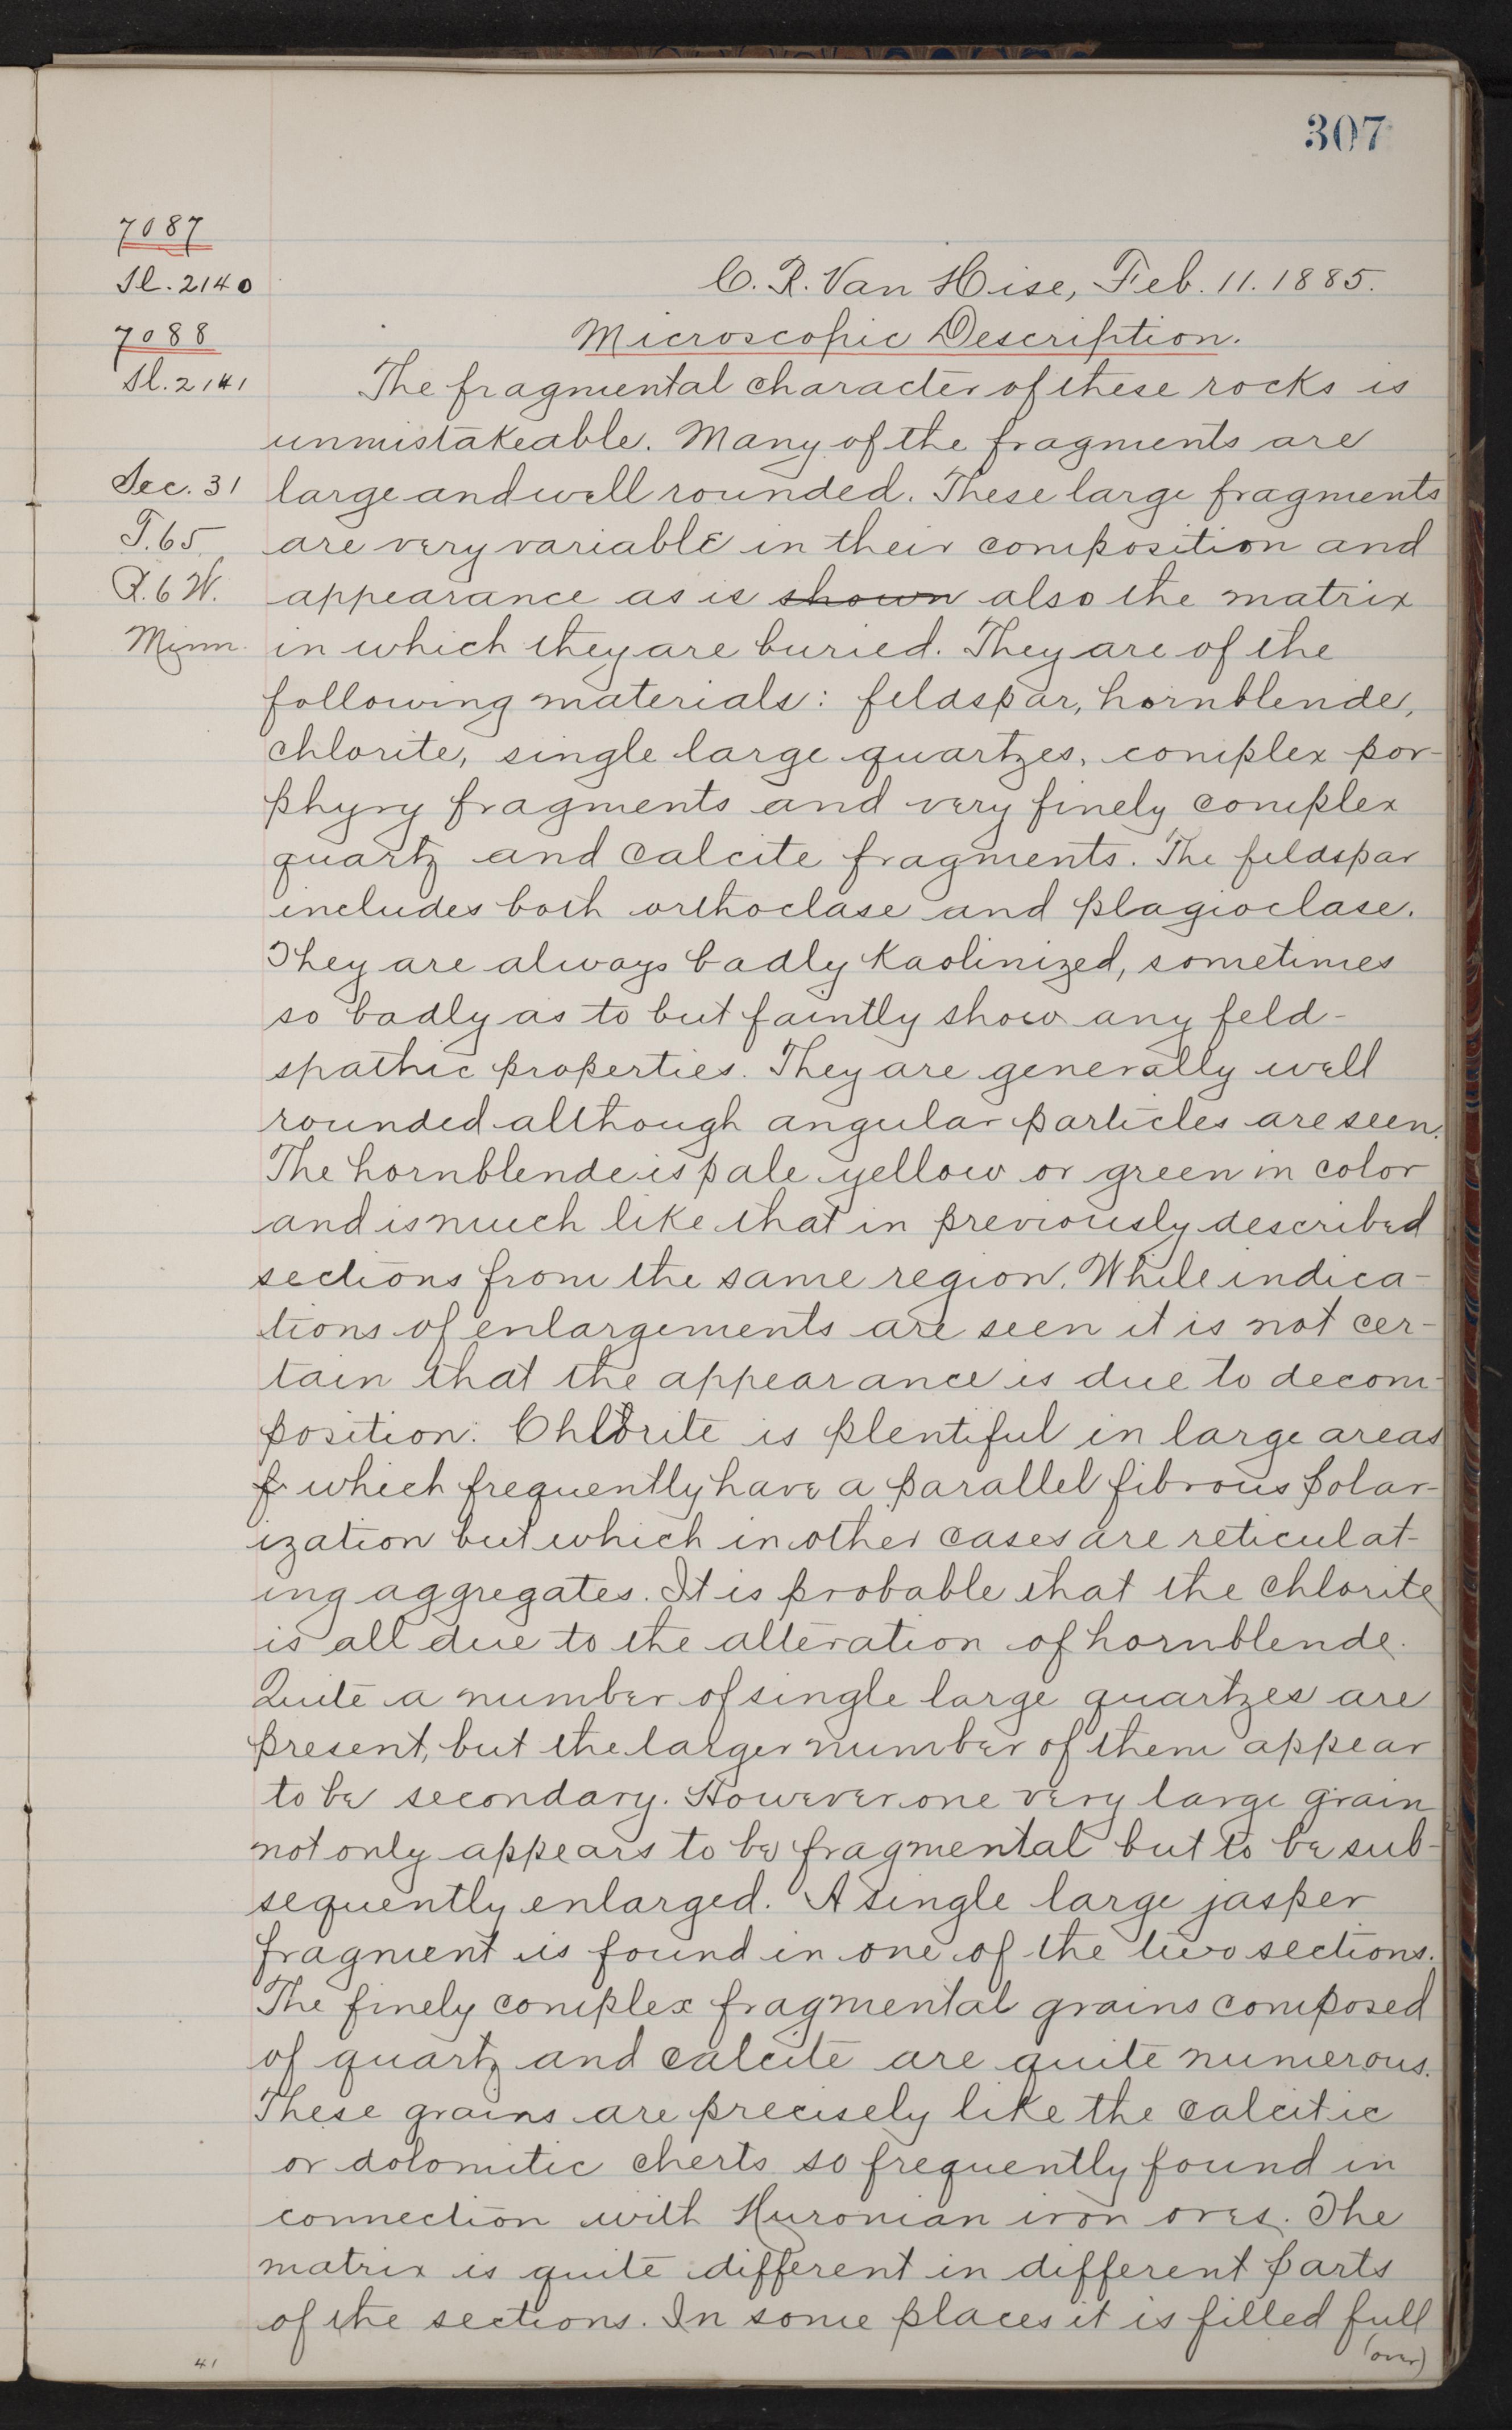 307
7087
Sl. 2140
7088
Sl. 2141
Sec. 31
T. 65
R. 6 W.
Minn.
C. R. Van Hise, Feb. 11. 1885.
Microscopic Description.
The fragmental character of these rocks is
unmistakeable. Many of the fragments are
large and well rounded. These large fragments
are very variable in their composition and
appearance as is shown also the matrix
in which they are buried. They are of the
following materials: feldspar, hornblende,
chlorite, single large quartzes, complex por-
phyry fragments and very finely complex
quartz and calcite fragments. The feldspar
includes both orthoclase and plagioclase.
They are always badly kaolinized, sometimes
so badly as to but faintly show any feld-
spathic properties. They are generally well
rounded although angular particles are seen.
The hornblende is pale yellow or green in color
and is much like that in previously described
sections from the same region. While indica-
tions of enlargements are seen it is not cer-
tain that the appearance is due to decom-
position. Chlorite is plentiful in large areas
f which frequently have a parallel fibrous polar-
ization but which in other cases are reticulat-
ing aggregates. It is probable that the chlorite
is all due to the alteration of hornblende.
Quite a number of single large quartzes are
present, but the larger number of them appear
to be secondary. However one very large grain
not only appears to be fragmental but to be sub-
sequently enlarged. A single large jasper
fragment is found in one of the two sections.
The finely complex fragmental grains composed
of quartz and calcite are quite numerous.
These grains are precisely like the calcitic
or dolomitic cherts so frequently found in
connection with Huronian iron ores. The
matrix is quite different in different parts
of the sections. In some places it is filled full
(over)
41